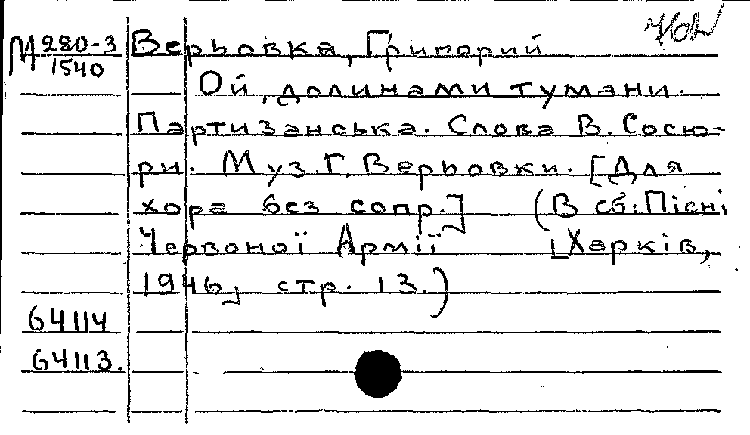 М 280-3 Верьовка, Григорий
1540
Ой, долинами тумани.
Партизанська. Слова В. Сосю-
ри. Муз. Г. Верьовки. [Для
хора без сопр.] (В сб: Пісні
Червоної Армії [Харків,
1946] стр. 13.)
64114
64113.